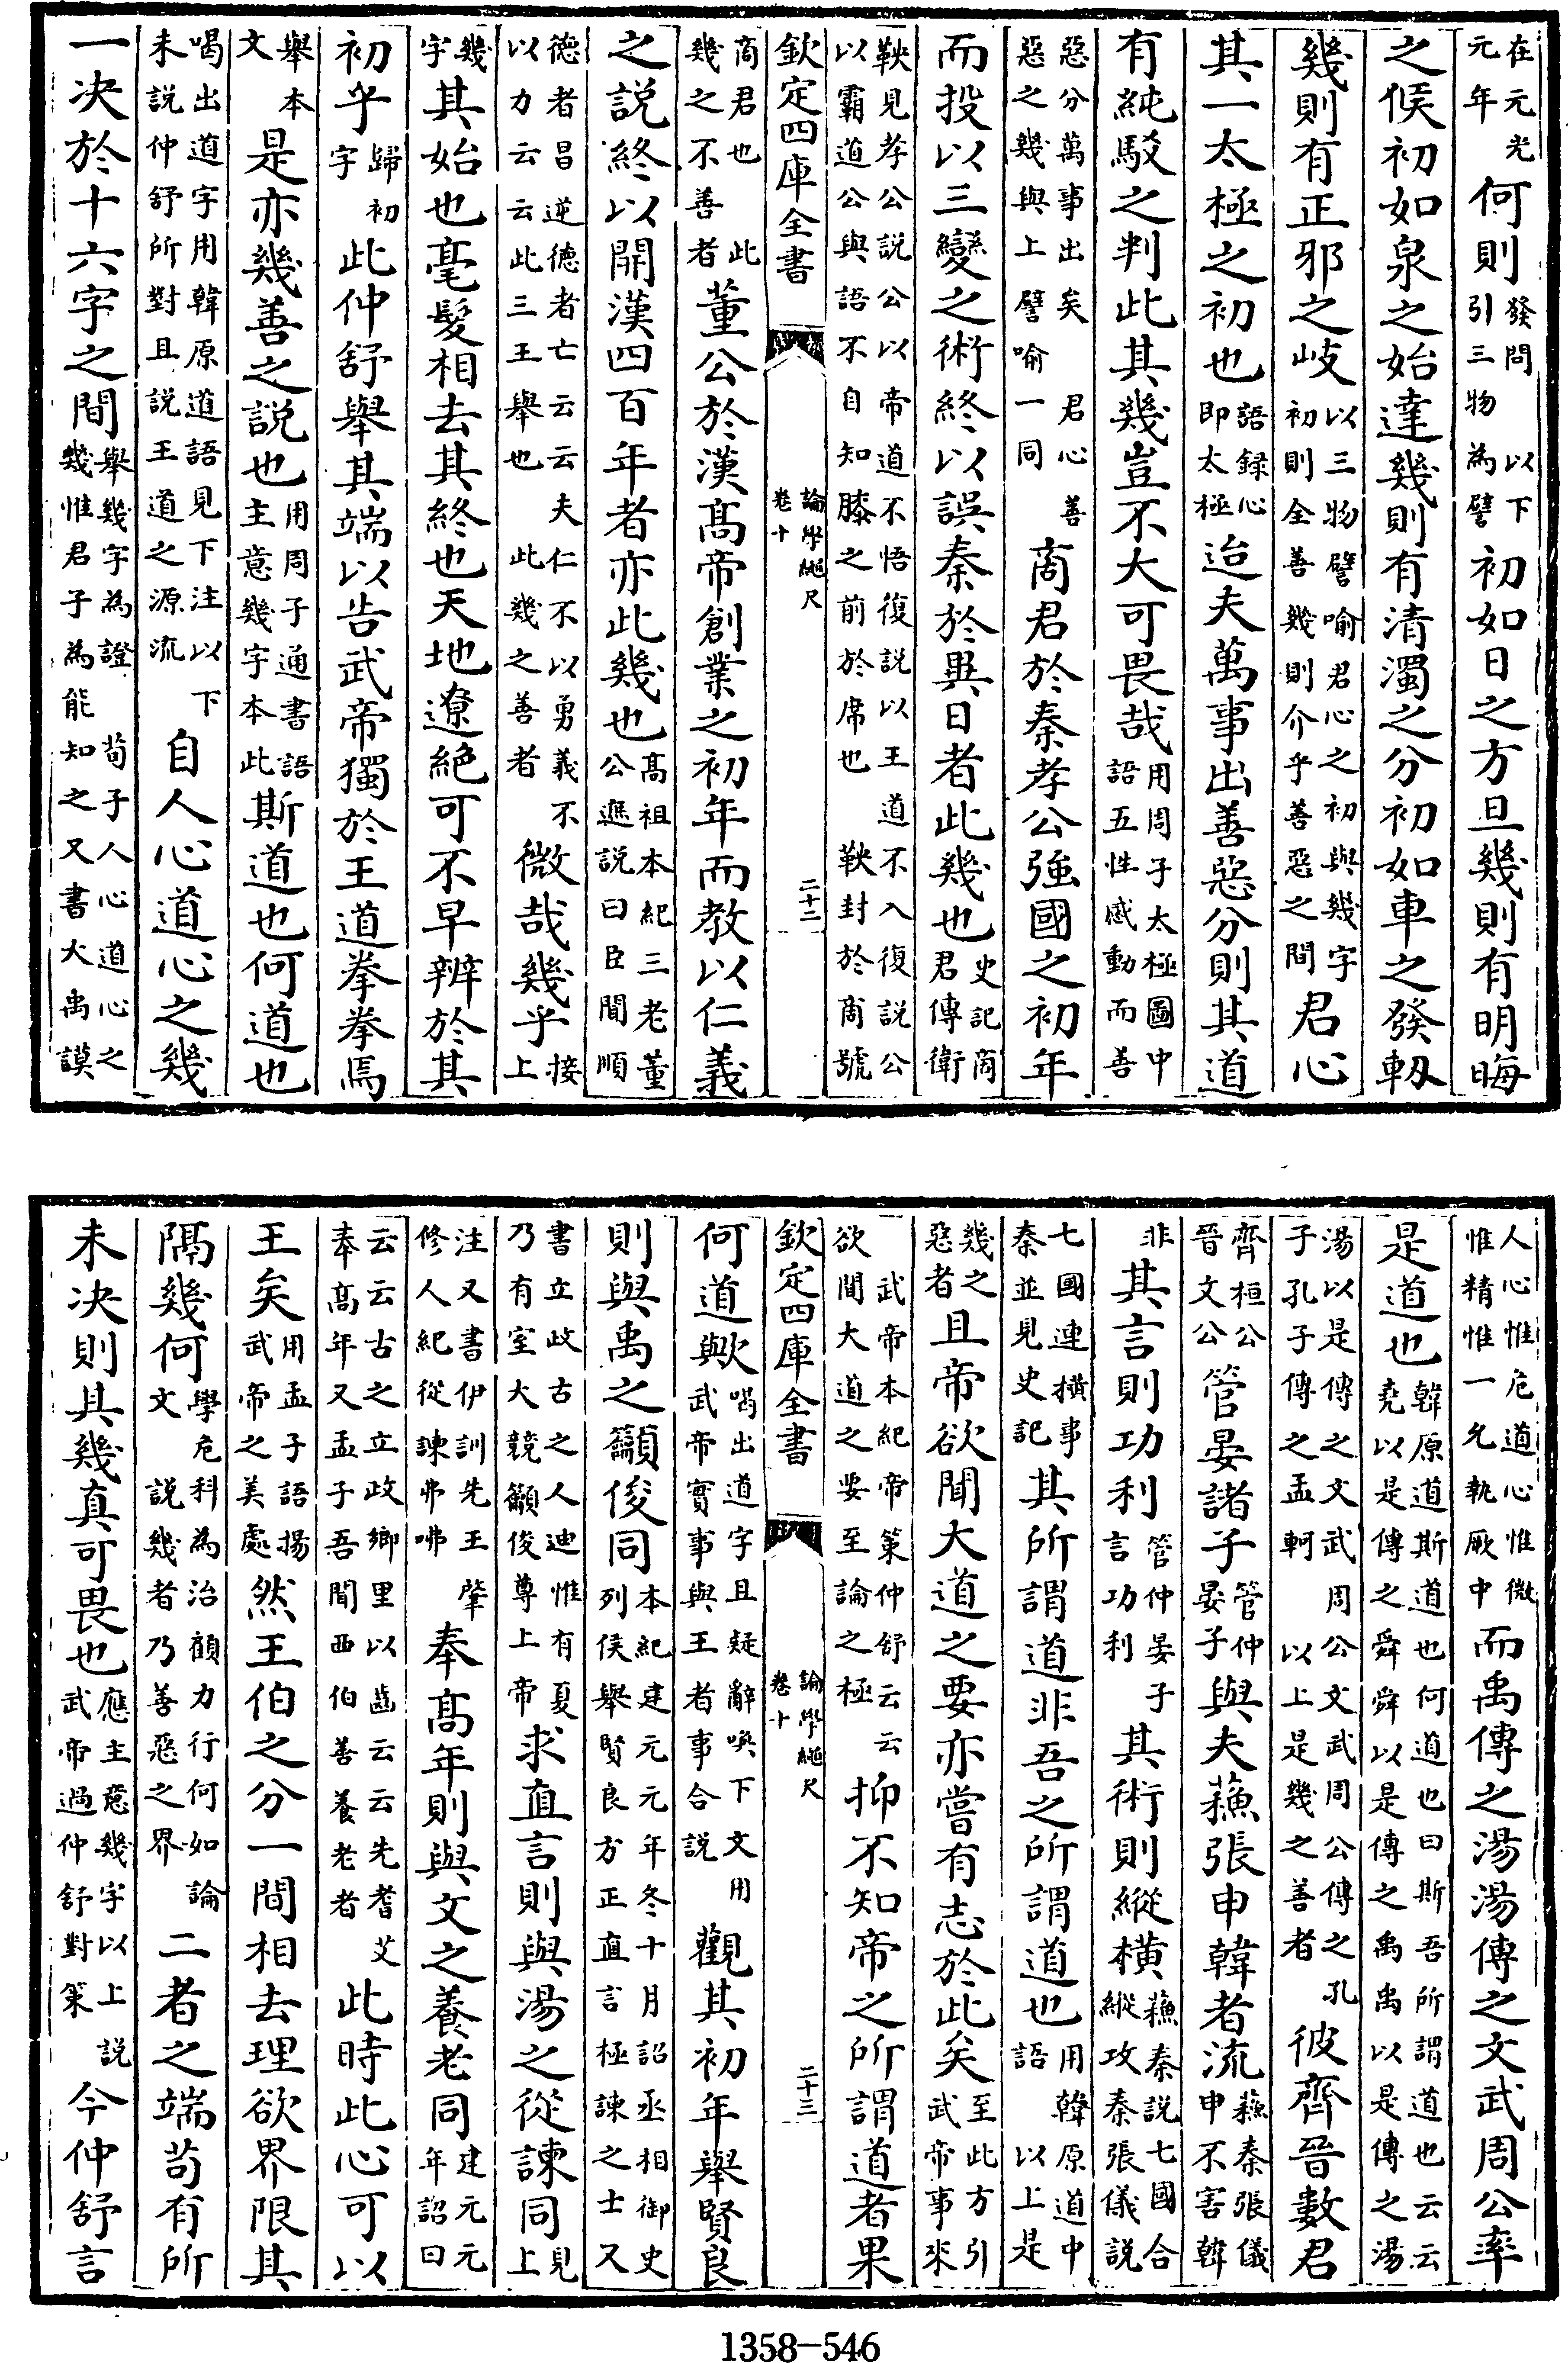 在元光元年何則發問以下引三物為譬初如日之方旦幾則有明晦
之候初如泉之始達幾則有清濁之分初如車之發軔
幾則有正邪之岐以三物譬喻君心之初與幾字初則全善幾則介乎善惡之間君心
其一太極之初也語録心即太極迨夫萬事出善惡分則其道
有純駁之判此其幾豈不大可畏哉用周子太極圖中語五性感動而善
惡分萬事出矣君心善惡之幾與上譬喻一同商君於秦孝公強國之初年
而投以三變之術終以誤秦於異日者此幾也史記商君傳衛
鞅見孝公說公以帝道不悟復說以王道不入復說公以霸道公與語不自知膝之前於席也鞅封於商號
欽定四庫全書
論學繩尺
卷十
二十二
商君也此幾之不善者董公於漢高帝創業之初年而教以仁義
之說終以開漢四百年者亦此幾也高祖本紀三老董公遮說曰臣聞順
德者昌逆德者亡云云夫仁不以勇義不以力云云此三王舉也此幾之善者微哉幾乎接上
幾字其始也毫髮相去其終也天地遼絕可不早辨於其
初乎歸初字此仲舒舉其端以告武帝獨於王道拳拳焉
舉本文是亦幾善之說也用周子通書語主意幾字本此斯道也何道也
喝出道字用韓原道語見下注以下未說仲舒所對且說王道之源流自人心道心之幾
一决於十六字之間舉幾字為證荀子人心道心之幾惟君子為能知之又書大禹謨
人心惟危道心惟微惟精惟一允執厥中而禹傳之湯湯傳之文武周公率
是道也韓原道斯道也何道也曰斯吾所謂道也云云堯以是傳之舜舜以是傳之禹禹以是傳之湯
湯以是傳之文武周公文武周公傳之孔子孔子傳之孟軻以上是幾之善者彼齊晉數君
齊桓公晉文公管晏諸子管仲晏子與夫蘓張申韓者流蘓秦張儀申不害韓
非其言則功利管仲晏子言功利其術則縱橫蘓秦說七國合縱攻秦張儀說
七國連橫事秦並見史記其所謂道非吾之所謂道也用韓原道中語以上是
幾之惡者且帝欲聞大道之要亦嘗有志於此矣至此方引武帝事來
武帝本紀帝策仲舒云云欲聞大道之要至論之極抑不知帝之所謂道者果
欽定四庫全書
論學繩尺
卷十
二十三
何道歟喝出道字且疑辭喚下文用武帝實事與王者事合說觀其初年舉賢良
則與禹之籲俊同本紀建元元年冬十月詔丞相御史列侯舉賢良方正直言極諫之士又
書立政古之人迪惟有夏乃有室大競籲俊尊上帝求直言則與湯之從諫同見上
注又書伊訓先王肇修人紀從諫弗咈奉高年則與文之養老同建元元年詔曰
云云古之立政鄉里以齒云云先耆艾奉高年又孟子吾聞西伯善養老者此時此心可以
王矣用孟子語揚武帝之美處然王伯之分一間相去理欲界限其
隔幾何學危科為治顧力行何如論文說幾者乃善惡之界二者之端苟有所
未决則其幾真可畏也應主意幾字以上說武帝過仲舒對策今仲舒言
1358-546